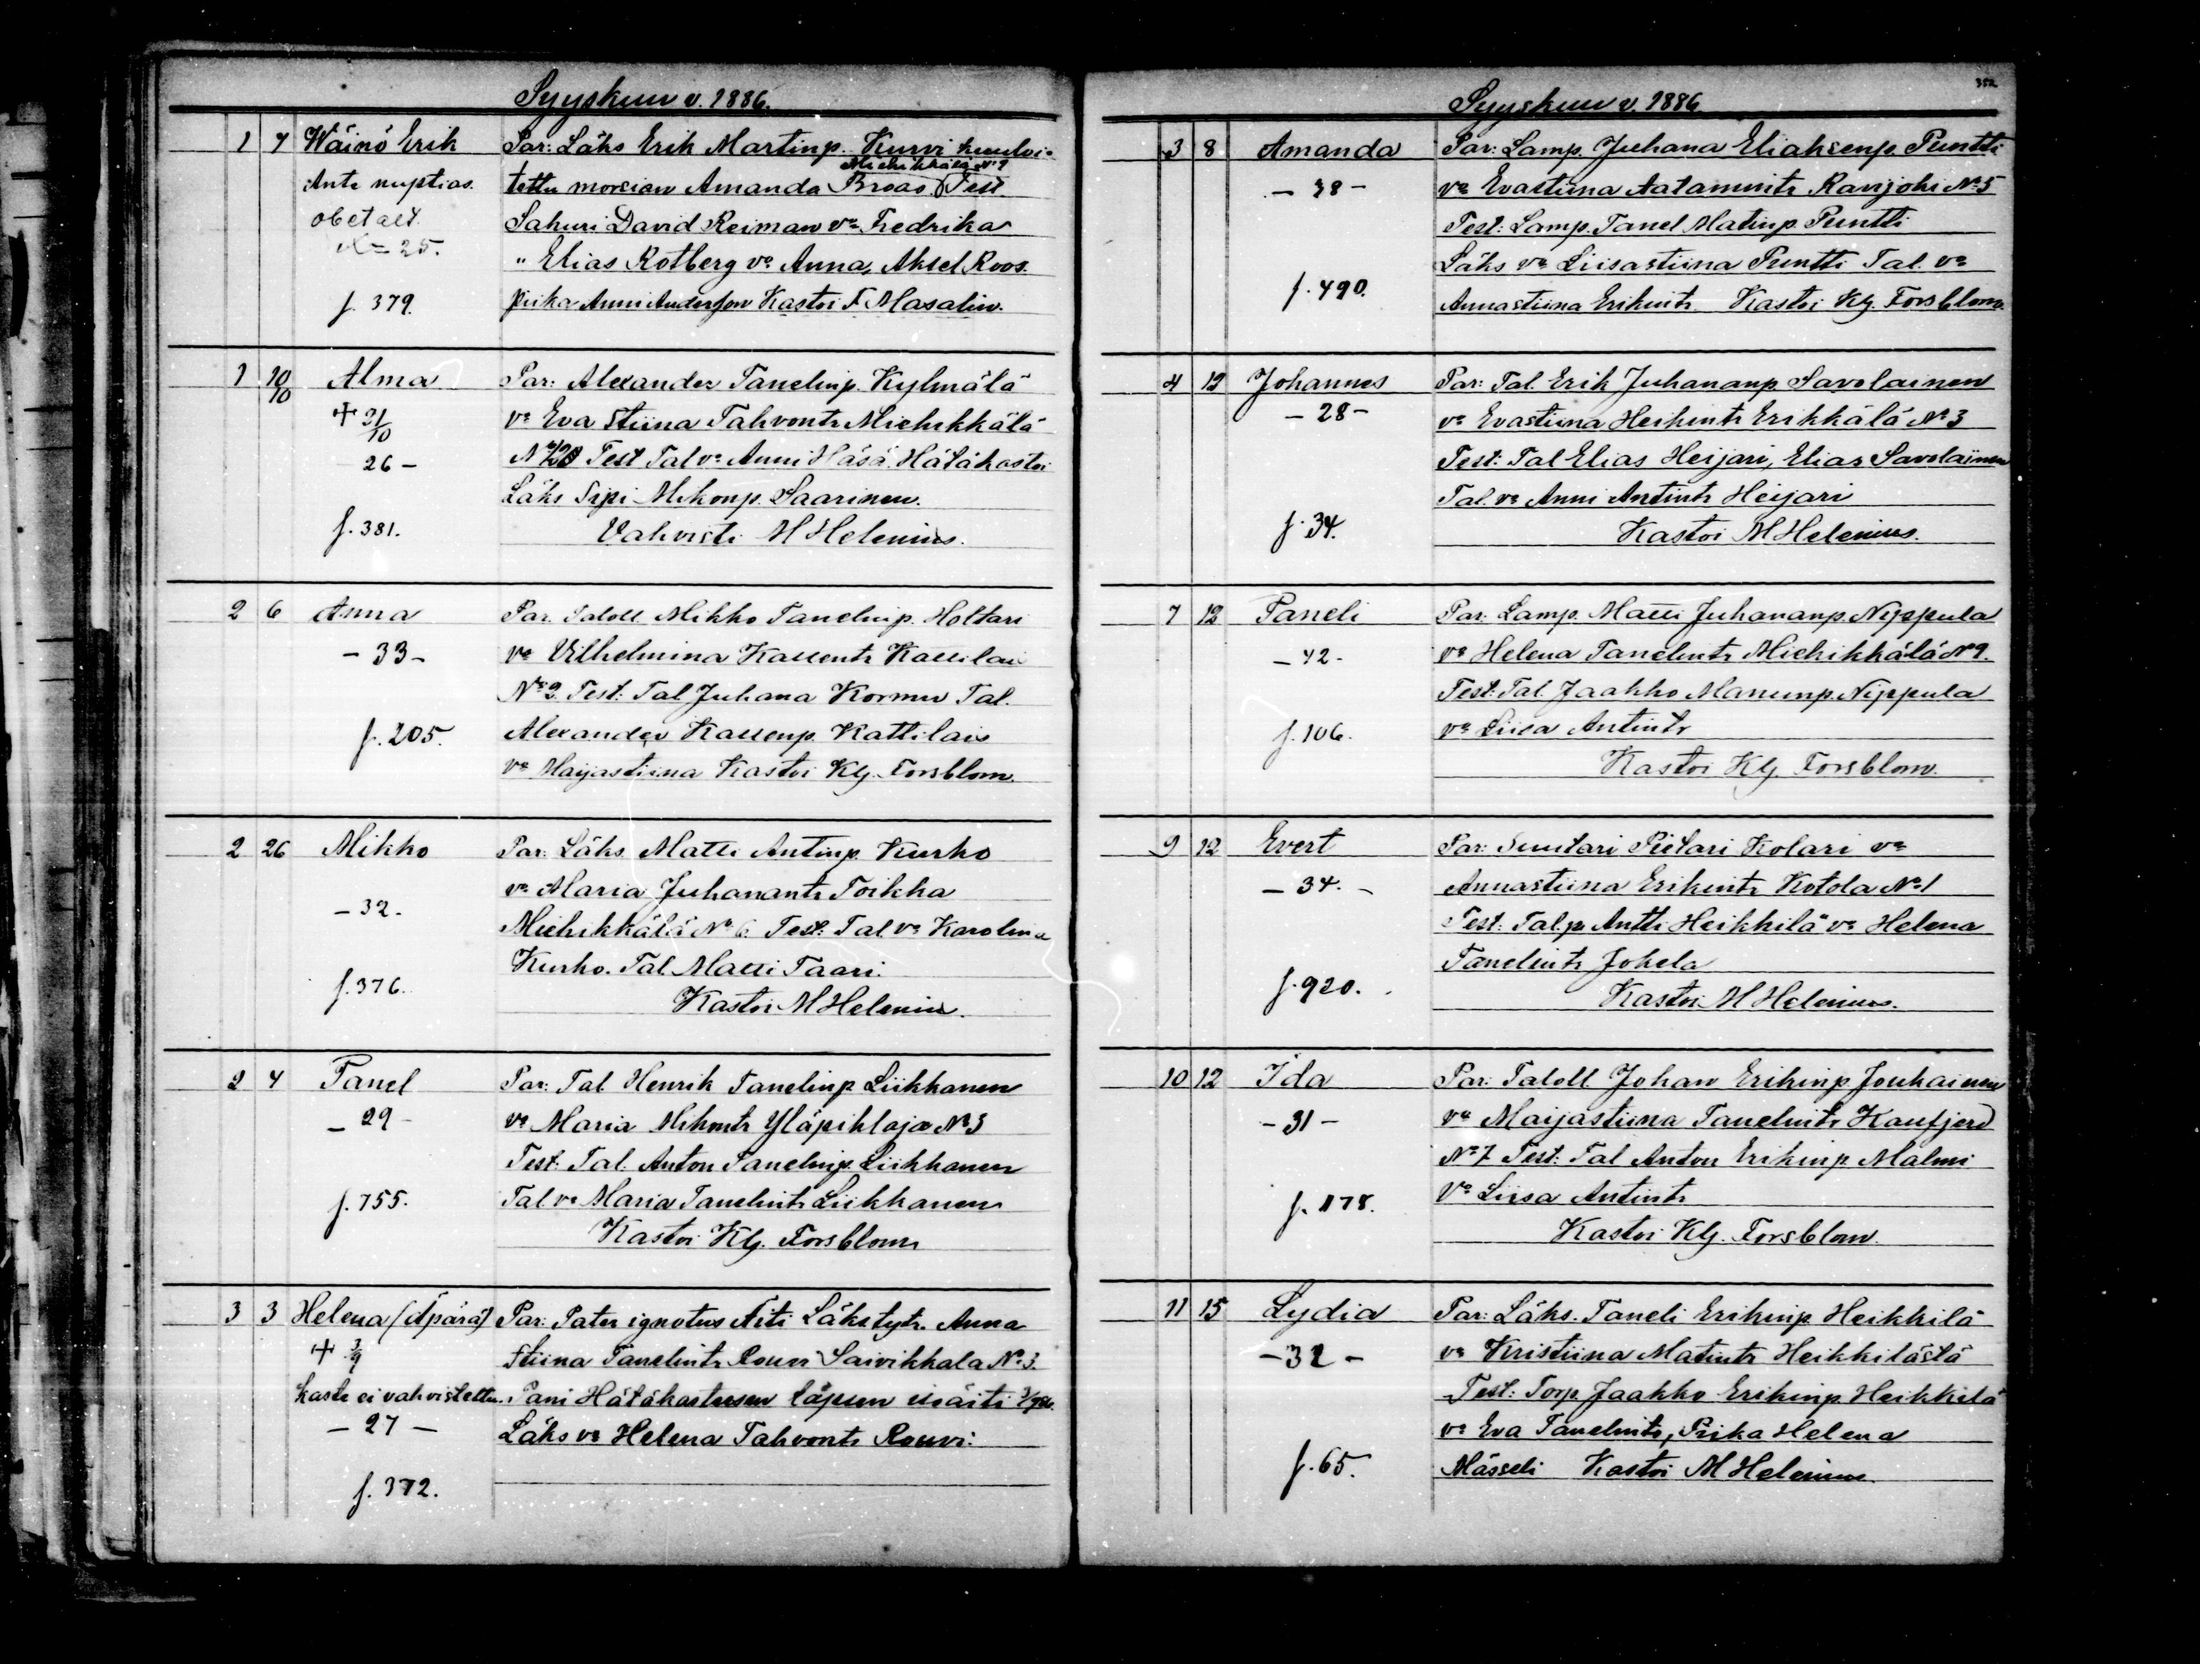 Syyskuu v. 1886.
1 7 Wäinö Erik Par: Läks Erik Martinp. Kurvi kuuloi-
Miehikkälä No 9
Ante nuptias. tettu morsian Amanda Broas Test
Sahuri David Reiman va Fredrika
25. " Elias Rotberg va Anna, Aksel Roos.
f. 379. piika Anni Anderson Kastoi F Masalin.
1 10/10 Alma Par: Alexander Tanelinp. Kylmälä
+ 31/10 va Eva Stiina Tahvontr Miehikkälä
26 - Test Tal va Anni Häsä. Hätäkastoi
Läks Sipi Mikonp. Saarinen.
f. 381. Vahvisti M Helenius.
2 6 Anna Par. Taloll. Mikko Tanelinp. Holtari
- 33 - va Vilhelmina Kassentr Kattilai
No 2. Test: Tal Juhana Kormu Tal.
f. 205. Alexander Kassenp. Kattilais
va Maijastiina Kastoi Klj. Forsblom.
2 26 Mikko Par: Läks Matti Antinp. Kurko
va Maria Juhanantr Toikka
- 32 - Miehikkälä No 6. Test: Tal. va Karolina
Kurko. Tal Matti Taari.
f. 376. Kastoi M Helenius.
2 4 Tanel Par: Tal Henrik Tanelinp Liikkanen
- 29 - va Maria Mikontr Yläpihlaja No 3
Test: Tal. Anton Tanelinp. Liikkanen
f. 755. Tal. va Maria Tanelintr Liikkanen
Kastoi Klj. Forsblom
3 3 Helena (Äpärä) Par: Pater ignotus Äiti Läkstytr. Anna
+ 3/9 Stiina Tanelintr Rouvi Saivikkala No 3.
kaste ei vahvistettu. Pani Hätäkasteesen lapsen isoäiti
- 27 - Läks va Helena Tahvontr Rouvi.
f. 372.
352
Syyskuu v. 1886
3 8 Amanda Par: Lamp. Juhana Eliaksenp. Puntti
- 38 - va Evastiina Aatamintr Ravijoki No 5
Test: Lamp. Tanel Matinp. Puntti
Läks va Liisastiina Puntti Tal. va
f. 490. Annastiina Erikintr Kastoi Klj. Forsblom.
4 12 Johannes Par: Tal. Erik Juhananp Savolainen
- 28 - va Evastiina Heikintr Erikkälä No 3
Test: Tal Elias Heijari, Elias Savolainen
Tal. va Anni Antintr Heijari
f. 34. Kastoi M Helenius.
7 12 Taneli Par: Lamp. Matti Juhananp. Nippula
- 42 - va Helena Tanelintr Miehikkälä No 9.
Test: Tal. Jaakko Manunp. Nippula
f. 106. va Liisa Antintr
Kastoi Klj. Forsblom.
9 12 Evert Par: Suutari Pietari Kolari va
- 34 - Annastiina Erikintr Kotola No 1
Test: Talp. Antti Heikkilä va Helena
Tanelintr Jokela
f. 920. Kastoi M Helenius.
10 12 Ida Par: Taloll Johan Erikinp Jouhainen
- 31 - va Maijastiina Tanelintr Kaufjerd
No 7 Test: Tal Anton Erikinp Malmi
f. 178. va Liisa Antintr
Kastoi Klj. Forsblom.
11 15 Lydia Par: Läks. Taneli Erikinp. Heikkilä
- 32 - va Kristiina Matintr Heikkilästä
Test: Torp. Jaakko Erikinp. Heikkilä
va Eva Tanelintr, Piika Helena
f. 65. Mässeli Kastoi M Helenius.